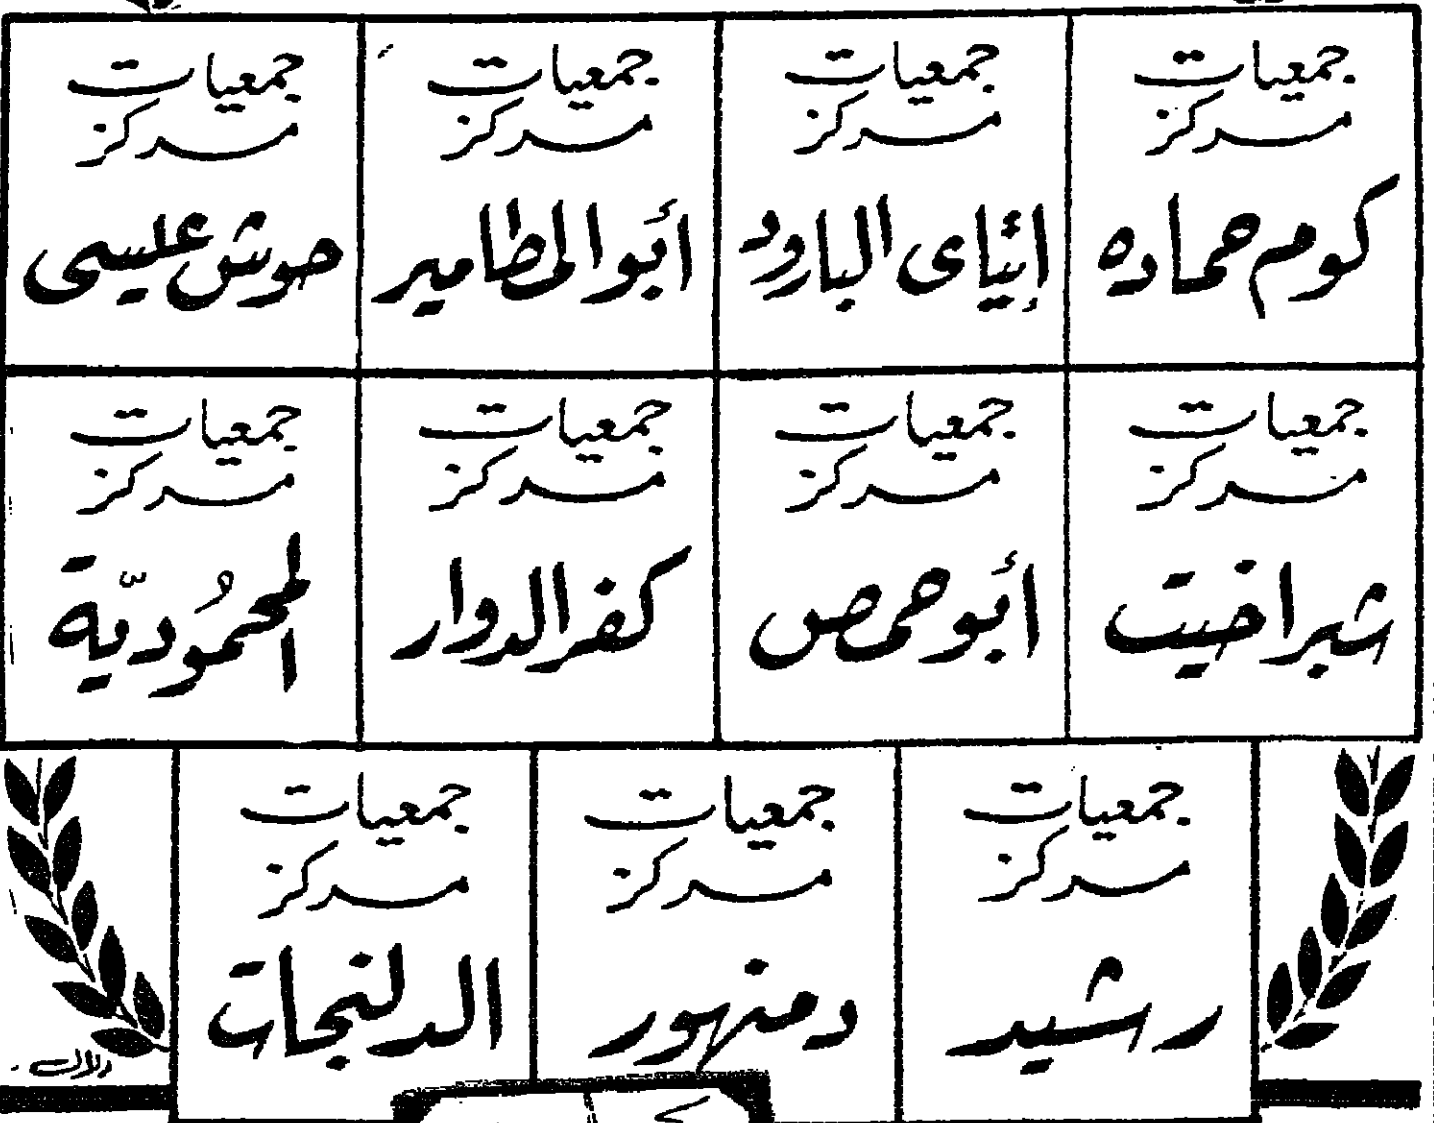 جمعيات
مركز
كوم حماده
جمعيات
مركز
إيتاى البارود
جمعيات
مركز
أبو المطامير
جمعيات
مركز
حوش عيسى
جمعيات
مركز
شبراخيت
جمعيات
مركز
أبو حمص
جمعيات
مركز
كفر الدوار
جمعيات
مركز
المحموديّة
جمعيات
مركز
رشيد
جمعيات
مركز
دمنهور
جمعيات
مركز
الدلنجات